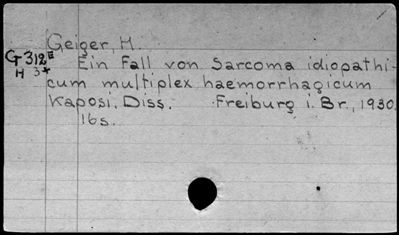 Geiger, H.
G 312 E Ein Fall von Sarcoma idiopathi-
H 3x cum multiplex haemorrhagicum
Kaposi. Diss. Freiburg i. Br., 1930.
16s.